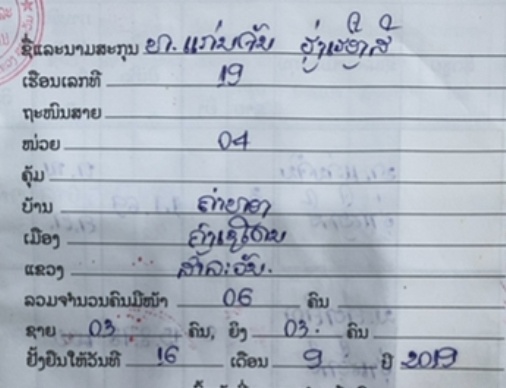 ຊື່ແລະນາມສະກຸນ ຍາ. ແກ່ນຈັນ
ເຮືອນເລກທີ 19
ຖະໜົນສາຍ
ໜ່ວຍ 04
ຄຸ້ມ
ບ້ານ
ເມືອງ ຄົງເຊໂດນ
ແຂວງ ສາລະວັນ.
ລວມຈຳນວນຄົນມີໜ້າ 06 ຄົນ
ຊາຍ 03 ຄົນ, ຍິງ 03. ຄົນ
ຢັ້ງຢືນໃຫ້ວັນທີ 16 ເດືອນ 9 ປີ 2019